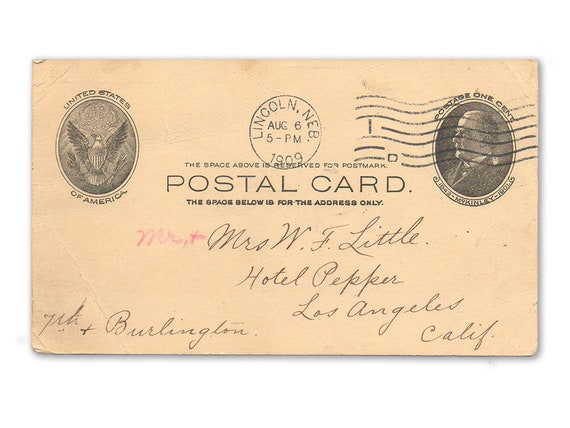 UNITED STATES
OF AMERICA.
LINCOLN, NEB.
AUG 6
5-PM
1909
1
D
POSTAGE ONE CENT
1843-McKINLEY-1901.
THE SPACE ABOVE IS RESERVED FOR POSTMARK.
POSTAL CARD.
THE SPACE BELOW IS FOR THE ADDRESS ONLY.
Mr. + Mrs W. F. Little.
Hotel Pepper
Los Angeles
7th + Burlington. Calif.